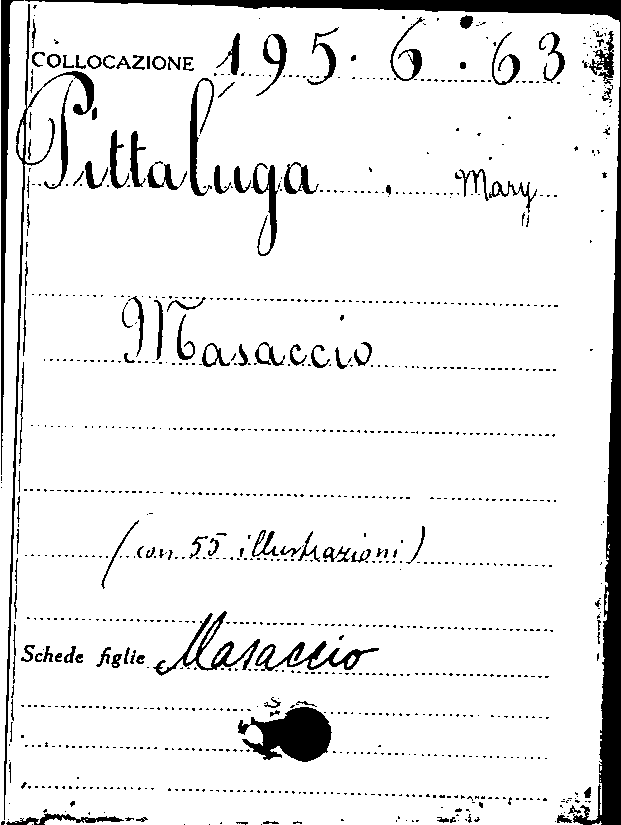 COLLOCAZIONE 195.6.63
Pittaluga . Mary
Masaccio
(con 55 illustrazioni)
Schede figlie Masaccio